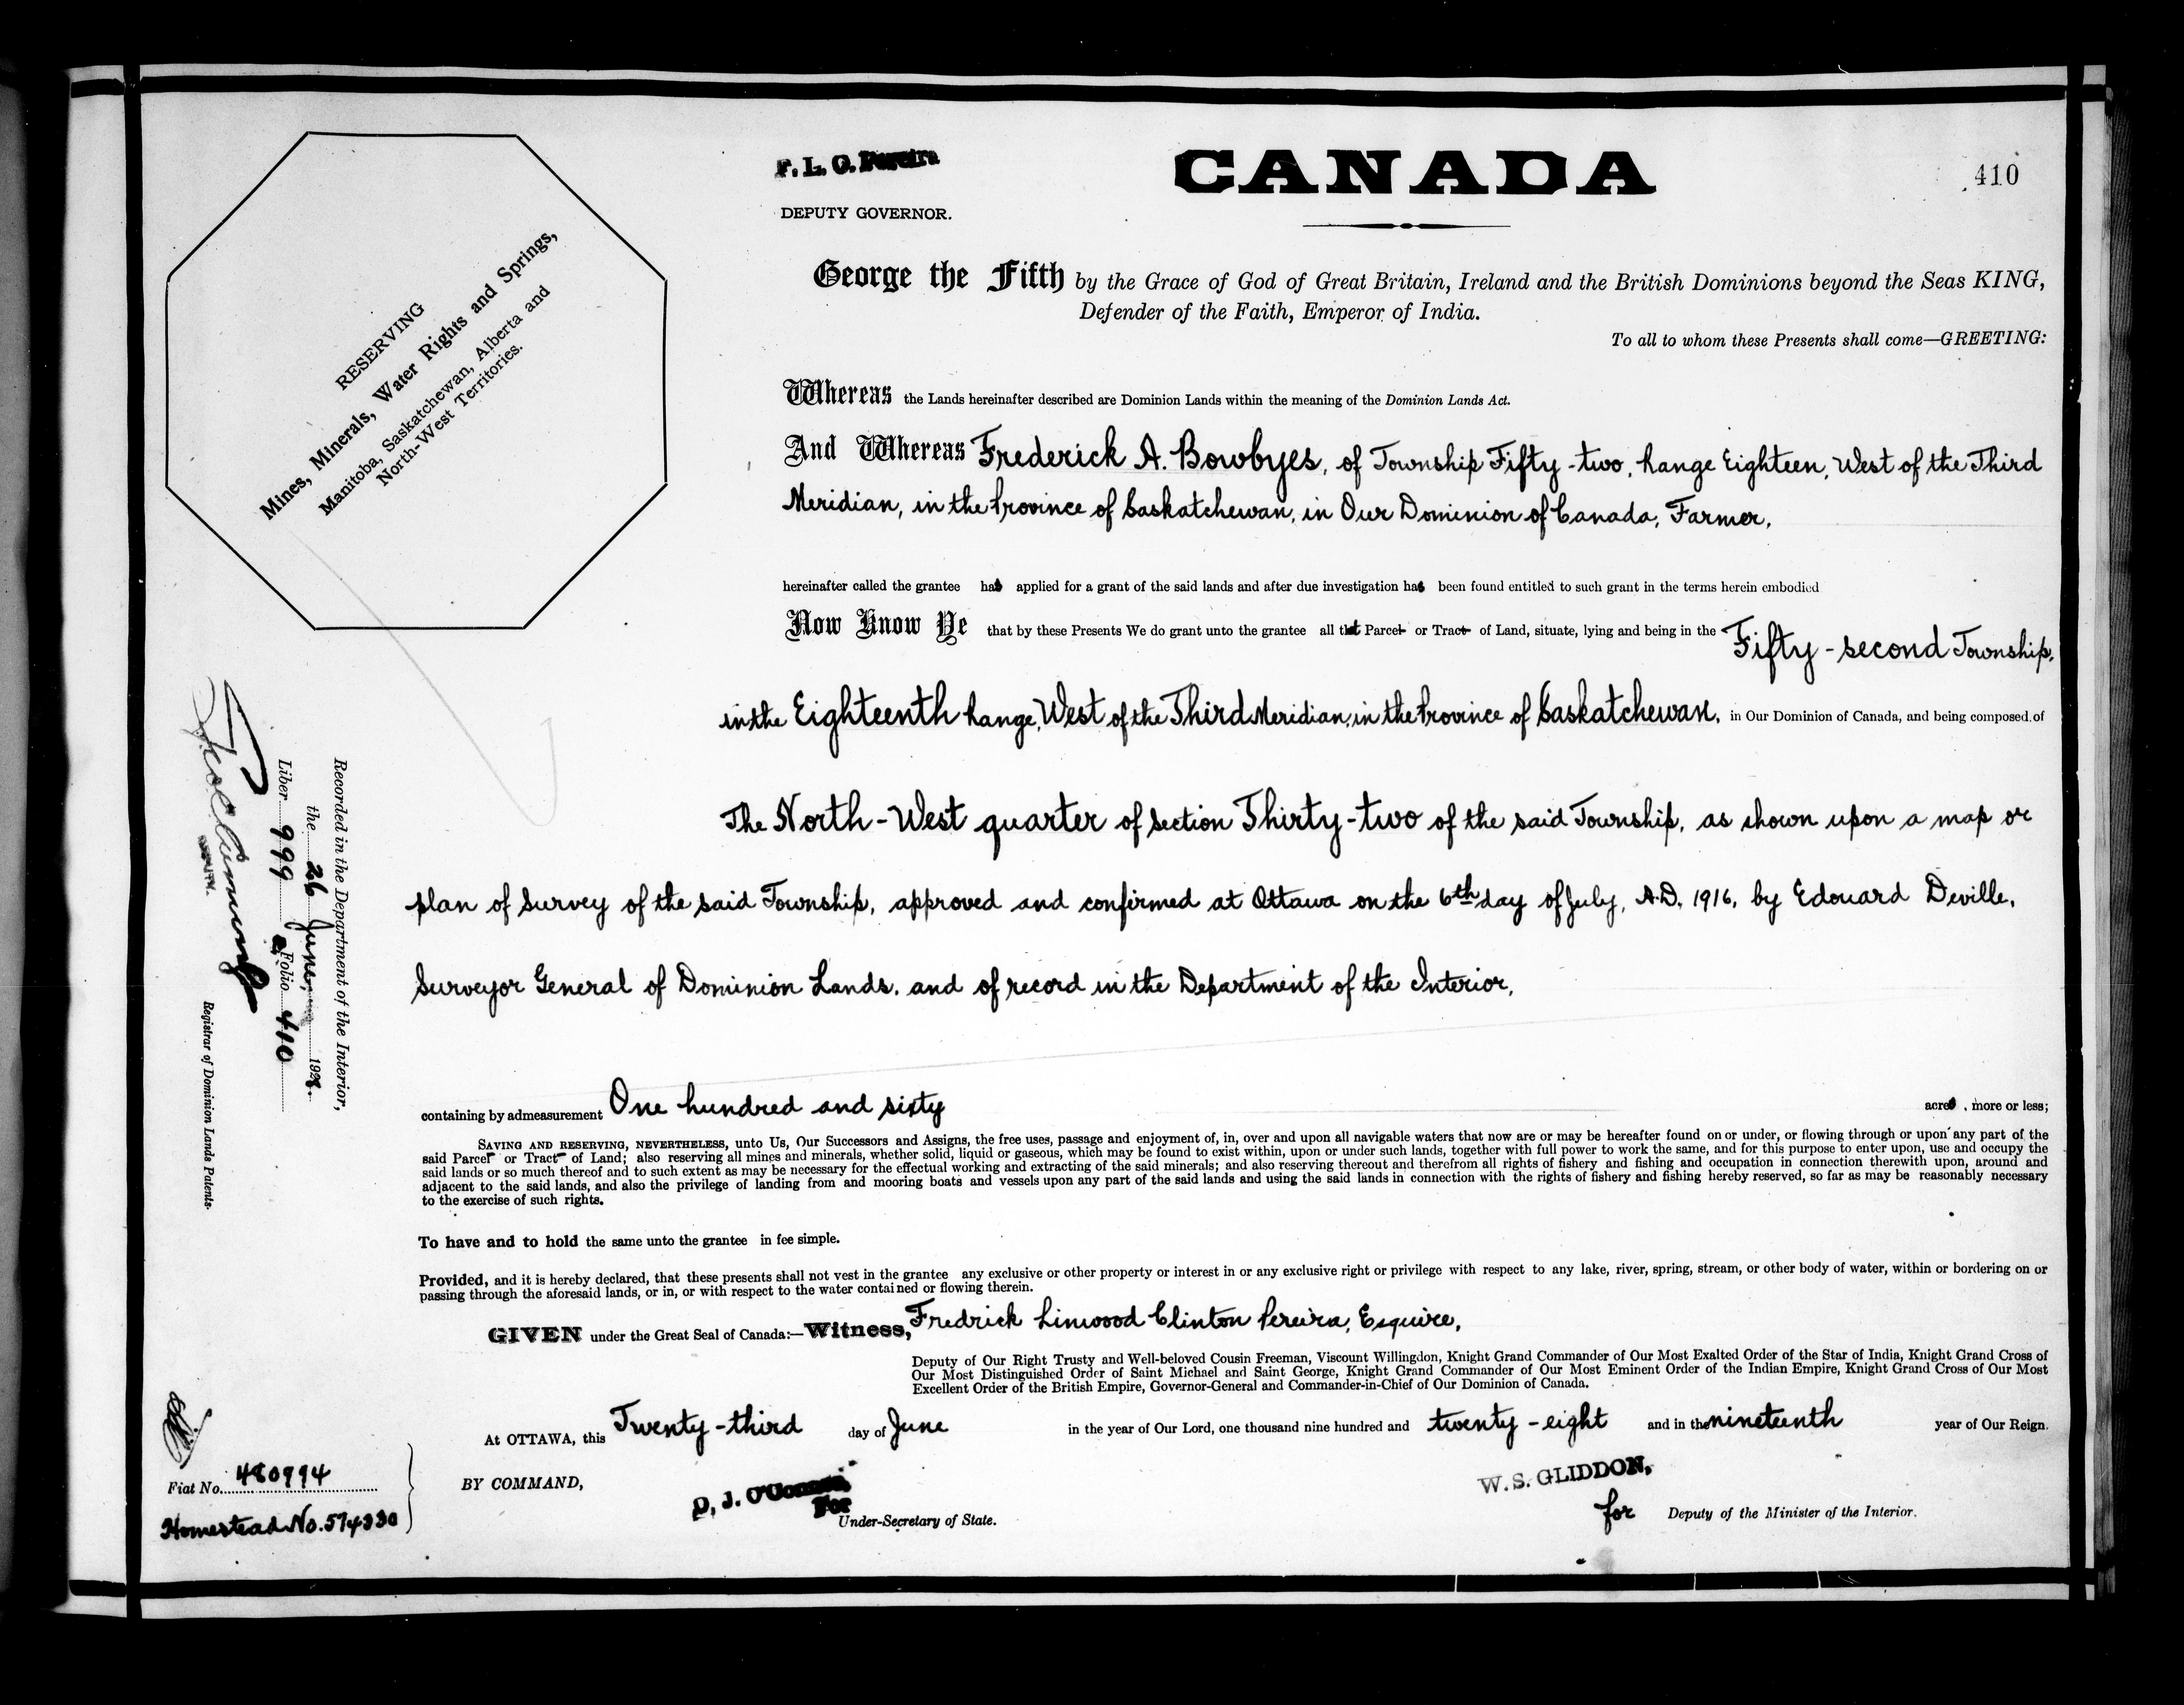 F. L. C. Pereira
DEPUTY GOVERNOR.
CANADA
410
RESERVING
Mines, Minerals, Water Rights and Springs,
Manitoba, Saskatchewan, Alberta and
North-West Territories.
George the Fifth by the Grace of God of Great Britain, Ireland and the British Dominions beyond the Seas KING,
Defender of the Faith, Emperor of India.
To all to whom these Presents shall come—GREETING:
Whereas the Lands hereinafter described are Dominion Lands within the meaning of the Dominion Lands Act.
And Whereas Frederick A. Bowbyes, of Township Fifty-two, Range Eighteen, West of the Third
Meridian, in the Province of Saskatchewan, in Our Dominion of Canada, Farmer,
hereinafter called the grantee has applied for a grant of the said lands and after due investigation has been found entitled to such grant in the terms herein embodied
Now Know Ye that by these Presents We do grant unto the grantee all that Parcel or Tract of Land, situate, lying and being in the Fifty-second Township,
in the Eighteenth Range, West of the Third Meridian, in the Province of Saskatchewan, in Our Dominion of Canada, and being composed of
The North-West quarter of Section Thirty-two of the said Township, as shown upon a map or
plan of Survey of the said Township, approved and confirmed at Ottawa on the 6th day of July, A.D. 1916, by Edouard Deville,
Surveyor General of Dominion Lands, and of record in the Department of the Interior,
containing by admeasurement One hundred and sixty acres, more or less;
SAVING AND RESERVING, NEVERTHELESS, unto Us, Our Successors and Assigns, the free uses, passage and enjoyment of, in, over and upon all navigable waters that now are or may be hereafter found on or under, or flowing through or upon any part of the
said Parcel or Tract of Land; also reserving all mines and minerals, whether solid, liquid or gaseous, which may be found to exist within, upon or under such lands, together with full power to work the same, and for this purpose to enter upon, use and occupy the
said lands or so much thereof and to such extent as may be necessary for the effectual working and extracting of the said minerals; and also reserving thereout and therefrom all rights of fishery and fishing and occupation in connection therewith upon, around and
adjacent to the said lands, and also the privilege of landing from and mooring boats and vessels upon any part of the said lands and using the said lands in connection with the rights of fishery and fishing hereby reserved, so far as may be reasonably necessary
to the exercise of such rights.
To have and to hold the same unto the grantee in fee simple.
Provided, and it is hereby declared, that these presents shall not vest in the grantee any exclusive or other property or interest in or any exclusive right or privilege with respect to any lake, river, spring, stream, or other body of water, within or bordering on or
passing through the aforesaid lands, or in, or with respect to the water contained or flowing therein.
GIVEN under the Great Seal of Canada:—Witness, Fredrick Linwood Clinton Pereira, Esquire,
Deputy of Our Right Trusty and Well-beloved Cousin Freeman, Viscount Willingdon, Knight Grand Commander of Our Most Exalted Order of the Star of India, Knight Grand Cross of
Our Most Distinguished Order of Saint Michael and Saint George, Knight Grand Commander of Our Most Eminent Order of the Indian Empire, Knight Grand Cross of Our Most
Excellent Order of the British Empire, Governor-General and Commander-in-Chief of Our Dominion of Canada.
At OTTAWA, this Twenty-third day of June in the year of Our Lord, one thousand nine hundred and twenty-eight and in the nineteenth year of Our Reign.
BY COMMAND,
For
Under-Secretary of State.
W. S. GLIDDON,
for Deputy of the Minister of the Interior.
Recorded in the Department of the Interior,
the 26 June, 1928.
Liber 999 Folio 410
Registrar of Dominion Lands Patents.
Fiat No. 480994
Homestead No. 574330